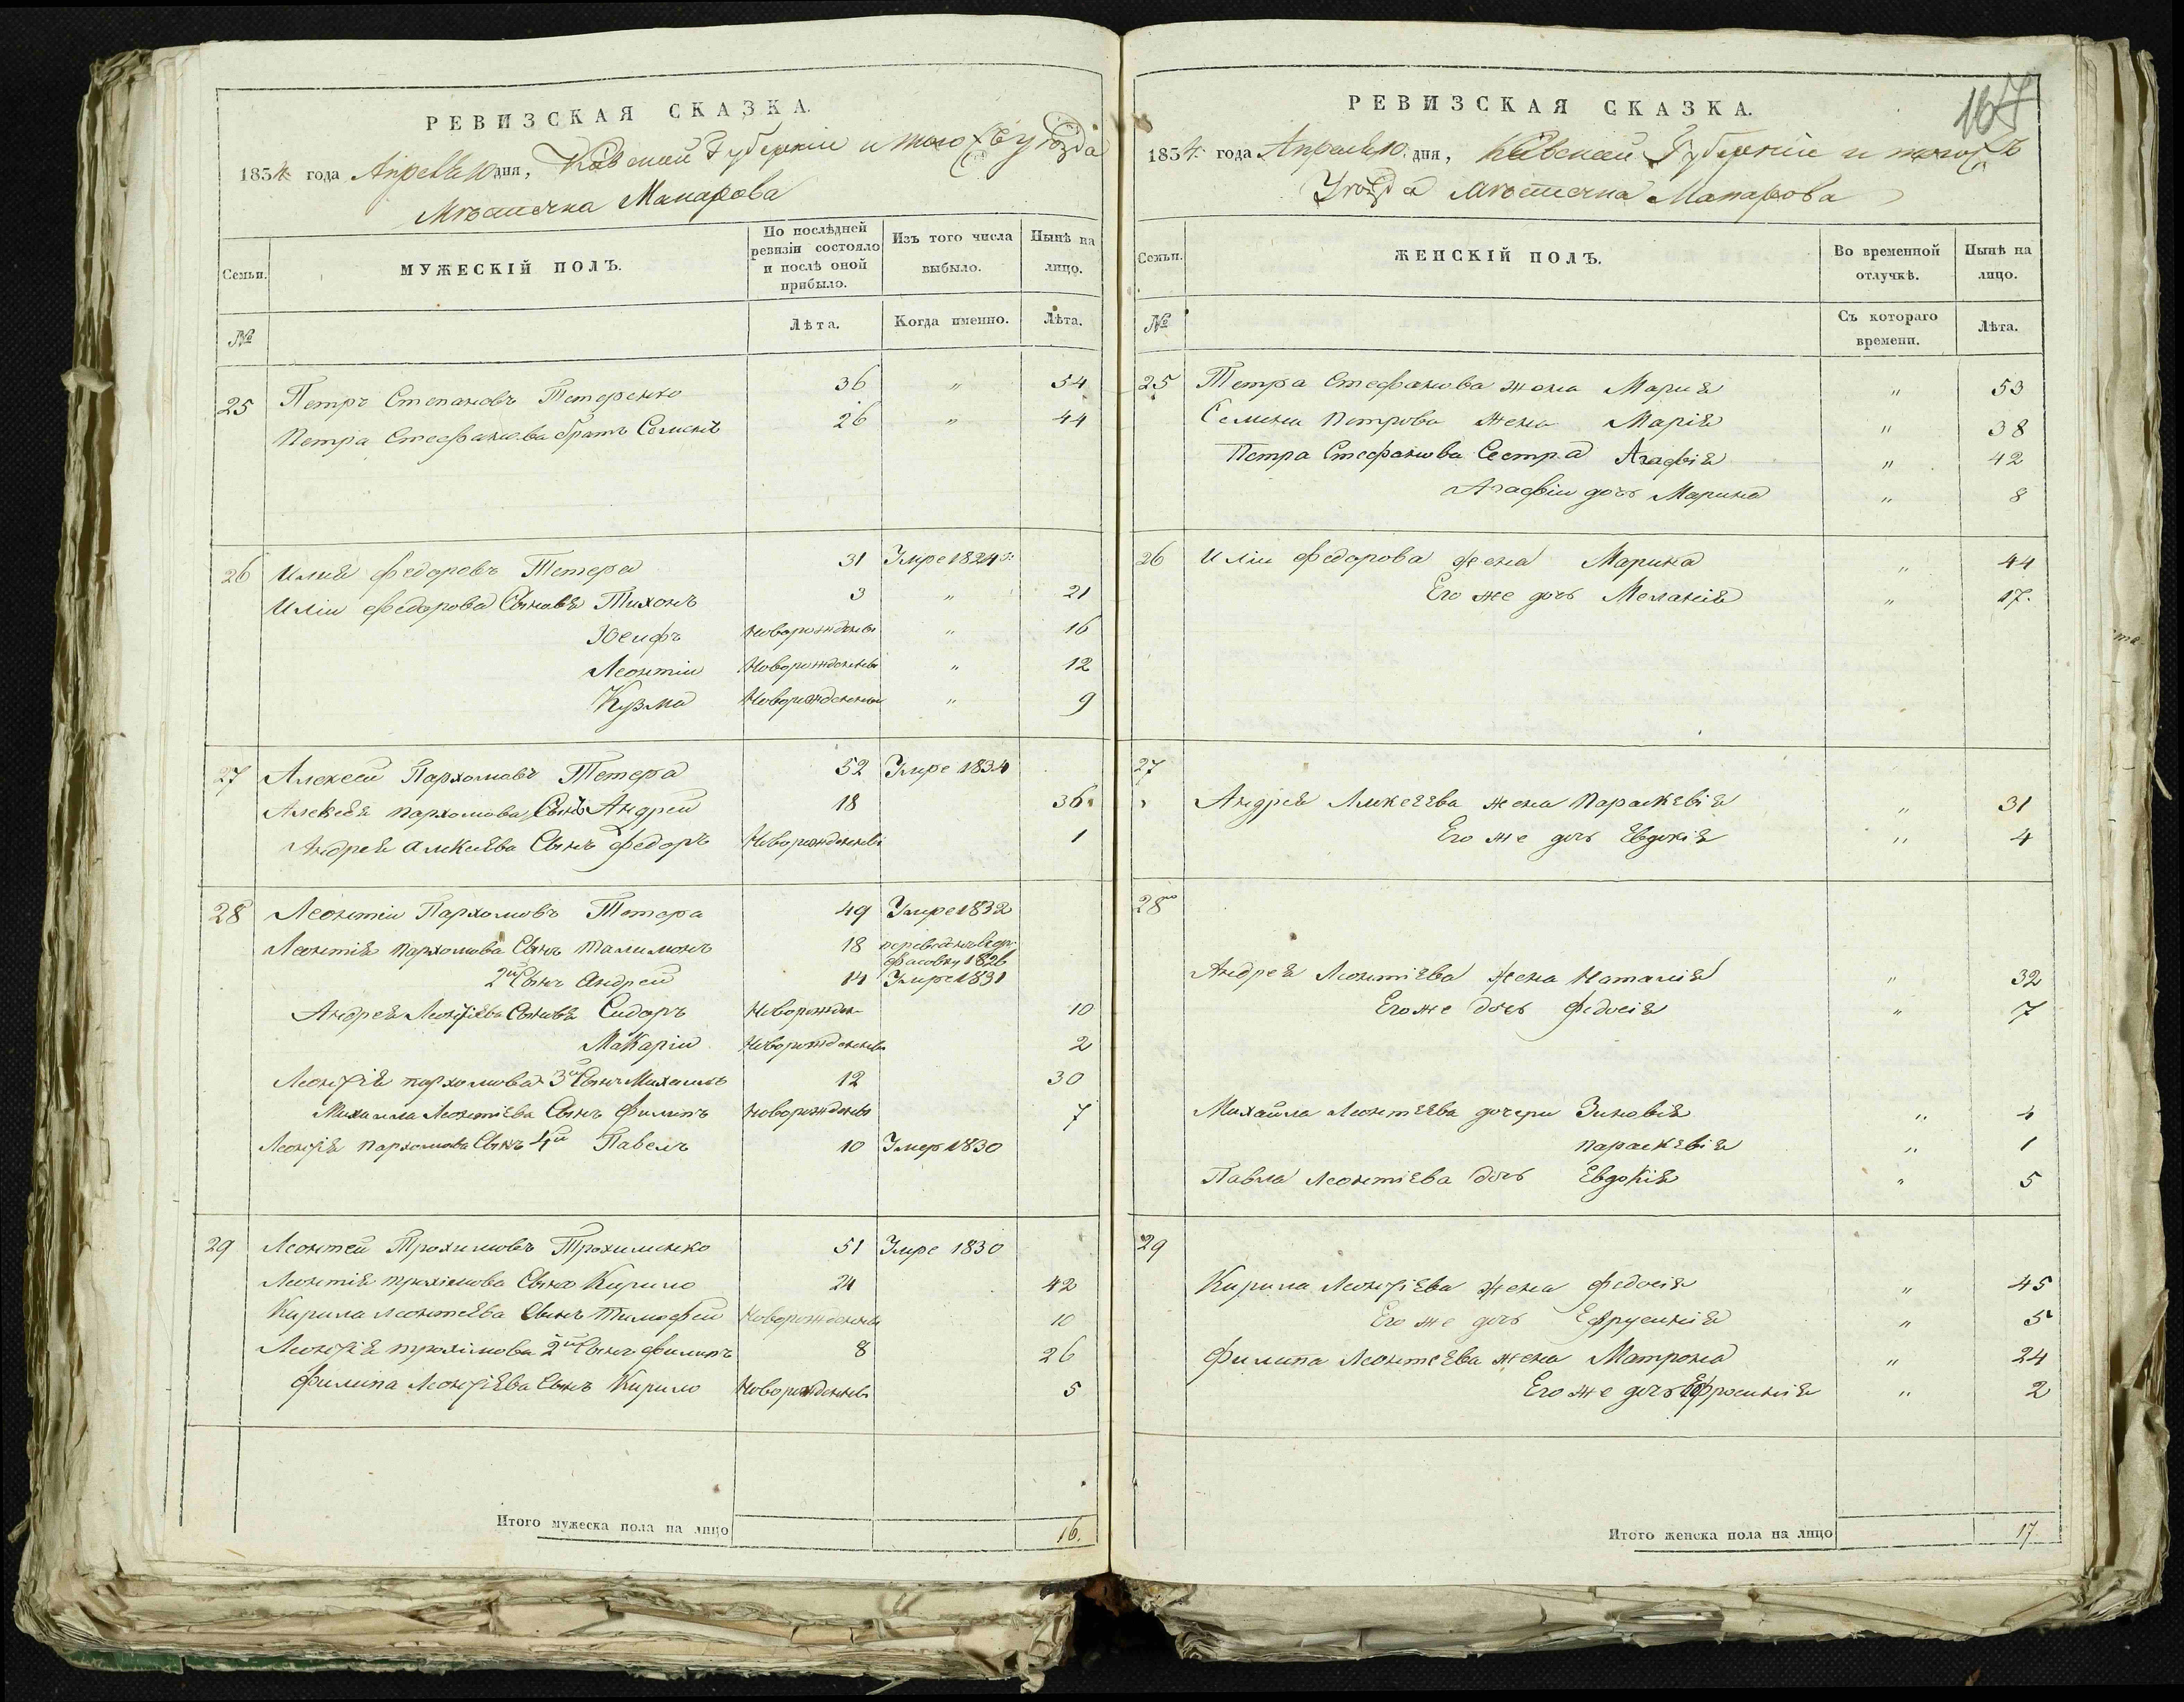 РЕВИЗСКАЯ СКАЗКА.
1834 года Апреля 10 дня, Кіевской Губерніи и того жъ уѣзда
Мѣстечка Макарова
Семьи.
МУЖЕСКІЙ ПОЛЪ.
По послѣдней ревизіи состояло и послѣ оной прибыло.
Изъ того числа выбыло.
Нынѣ на лицо.
№
Лѣта.
Когда именно.
Лѣта.
25 Петръ Степановъ Тетеренко 36 " 54
Петра Стефанова братъ Семенъ 26 " 44
26 Илия федоровъ Тетера 31 Умре 1824
Иліи федорова Сыновья Тихонъ 3 " 21
Іосифъ Новорожденны " 16
Леонтіи Новорожденны " 12
Кузма Новорожденны " 9
27 Алексеи Пархомовъ Тетера 52 Умре 1834
Алексея пархомова Сынъ Андреи 18 36
Андрея алексѣева Сынъ федоръ Новорожденны 1
28 Леонтіи Пархомовъ Тетера 49 Умре 1832
Леонтія пархомова Сынъ 18 1826
2й Сынъ андреи 14 Умре 1831
Андрея Леонтіева Сыновья Сидоръ Новорожден 10
Макаріи Новорожденны 2
Леонтія пархомова 3й Сынъ Михаилъ 12 30
Михаила Леонтіева Сынъ Филипъ Новорожденны 7
Леонтія пархомова Сынъ 4й Павелъ 10 Умер 1830
29 Леонтеи Трохимовъ Трохименко 51 Умре 1830
Леонтія трохімова Сынъ Кирило 24 42
Кирила леонтеева Сынъ Тимофеи Новорожденны 10
Леонтія трохімова 2й Сынъ филипъ 8 26
Филипа Леонтіева Сынъ Кирило Новорожденны 5
Итого мужеска пола на лицо 16.
167
РЕВИЗСКАЯ СКАЗКА.
1834 года Апреля 10 дня, Кіевской Губерніи и того жъ
Уѣзда мѣстечка Макарова
Семьи.
ЖЕНСКІЙ ПОЛЪ.
Во временной отлучкѣ.
Нынѣ на лицо.
№
Съ котораго времени.
Лѣта.
25 Петра Стефанова жена Мария " 53
Семена Петрова жена Марія " 38
Петра Стефанова Сестра Агафія " 42
Агафіи дочь Марина " 8
26 Иліи федорова жена Марина " 44
Его же дочь Меланія " 17.
27
Андрея Алексеева жена параскевія " 31
Его же дочь Евдокія " 4
28
Андрея Леонтіева жена Наталія " 32
Его же дочь федосія " 7
Михаила Леонтеева дочери Зиновія " 4
параскевія " 1
Павла Леонтіева дочь Евдокія " 5
29
Кирила Леонтіева жена федосія " 45
Его же дочь Ефрусинія " 5
Филипа Леонтеева жена Матрона " 24
Его же дочь Ефросинія " 2
Итого женска пола на лицо 17